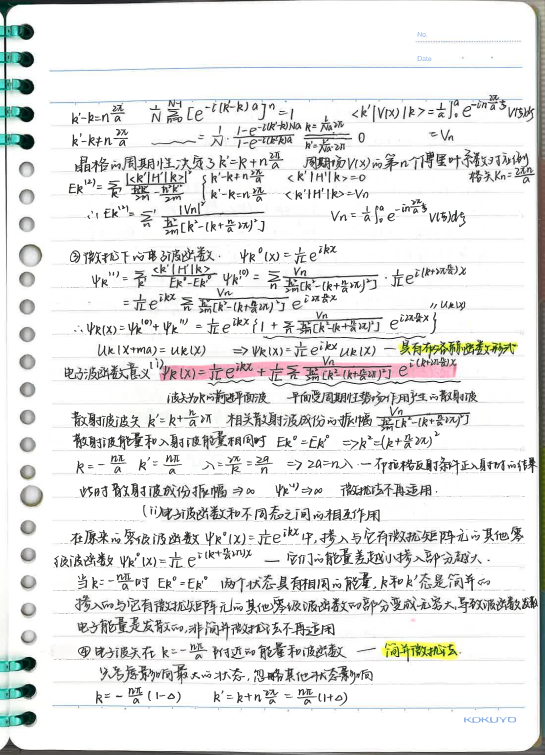 No.
Date
k'-k=n 2π/a   1/N Σ_{n=0}^{N-1} [e^{-i(k'-k)a}]^n = 1   <k'|V(x)|k> = 1/a ∫_0^a e^{-in 2π/a ξ} V(ξ)dξ
k'-k≠n 2π/a   = 1/N · (1-e^{-i(k'-k)Na})/(1-e^{-i(k'-k)a})   0   = Vn
晶格的周期性决定了 k'=k+n 2π/a   周期场V(x)的第n个傅里叶系数对应倒格矢Kn=2πn/a
Ek^{(2)} = Σ'_{k'} |<k'|H'|k>|²/(ħ²k²/2m - ħ²k'²/2m)   { k'-k≠n 2π/a   <k'|H'|k>=0
k'-k=n 2π/a   <k'|H'|k>=Vn
∴ Ek^{(2)} = Σ'_n |Vn|²/(ħ²/2m [k²-(k+n/a 2π)²])   Vn = 1/a ∫_0^a e^{-in 2π/a ξ} V(ξ)dξ
③微扰下的电子波函数.   ψk^0(x) = 1/√L e^{ikx}
ψk^{(1)} = Σ'_{k'} <k'|H'|k>/(Ek^0-Ek'^0) ψk'^{(0)} = Σ'_n Vn/(ħ²/2m [k²-(k+n/a 2π)²]) · 1/√L e^{i(k+2π n/a)x}
= 1/√L e^{ikx} Σ'_n Vn/(ħ²/2m [k²-(k+n/a 2π)²]) e^{i2π n/a x}
∴ ψk(x) = ψk^{(0)}+ψk^{(1)} = 1/√L e^{ikx} {1+Σ'_n Vn/(ħ²/2m [k²-(k+n/a 2π)²]) e^{i2π n/a x}}   "uk(x)
uk(x+ma) = uk(x)   ⇒ ψk(x) = 1/√L e^{ikx} uk(x) — 具有布洛赫函数形式
电子波函数意义 (i) ψk(x) = 1/√L e^{ikx} + 1/√L Σ'_n Vn/(ħ²/2m [k²-(k+n/a 2π)²]) e^{i(k+2π n/a)x}
波矢为k的前进平面波   平面受周期性势场作用产生的散射波
散射波波矢 k'=k+n/a 2π   相关散射波成份的振幅 Vn/(ħ²/2m [k²-(k+n/a 2π)²])
散射波能量和入射波能量相同时 Ek^0=Ek'^0 ⇒ k²=(k+n/a 2π)²
k=-nπ/a   k'=nπ/a   λ=2π/k=2a/n   ⇒ 2a=nλ — 布拉格反射条件正入射时的结果
此时散射波成份振幅⇒∞   ψk^{(1)}⇒∞   微扰法不再适用.
(ii)电子波函数和不同态之间的相互作用
在原来的零级波函数ψk^0(x)=1/√L e^{ikx}中,掺入与它有微扰矩阵元的其他零
级波函数ψk'^0(x)=1/√L e^{i(k+2π n/a)x} — 它们的能量差越小掺入部分越大.
当k=-nπ/a时 Ek^0=Ek'^0   两个状态具有相同的能量, k和k'态是简并的
掺入的与它有微扰矩阵元的其他零级波函数的部分变成无穷大,导致波函数发散
电子能量是发散的,非简并微扰法不再适用
④电子波矢在k=-nπ/a附近的能量和波函数 — 简并微扰法.
先考虑影响最大的状态,忽略其他状态影响
k=-nπ/a (1-Δ)   k'=k+n 2π/a=nπ/a (1+Δ)
KOKUYO